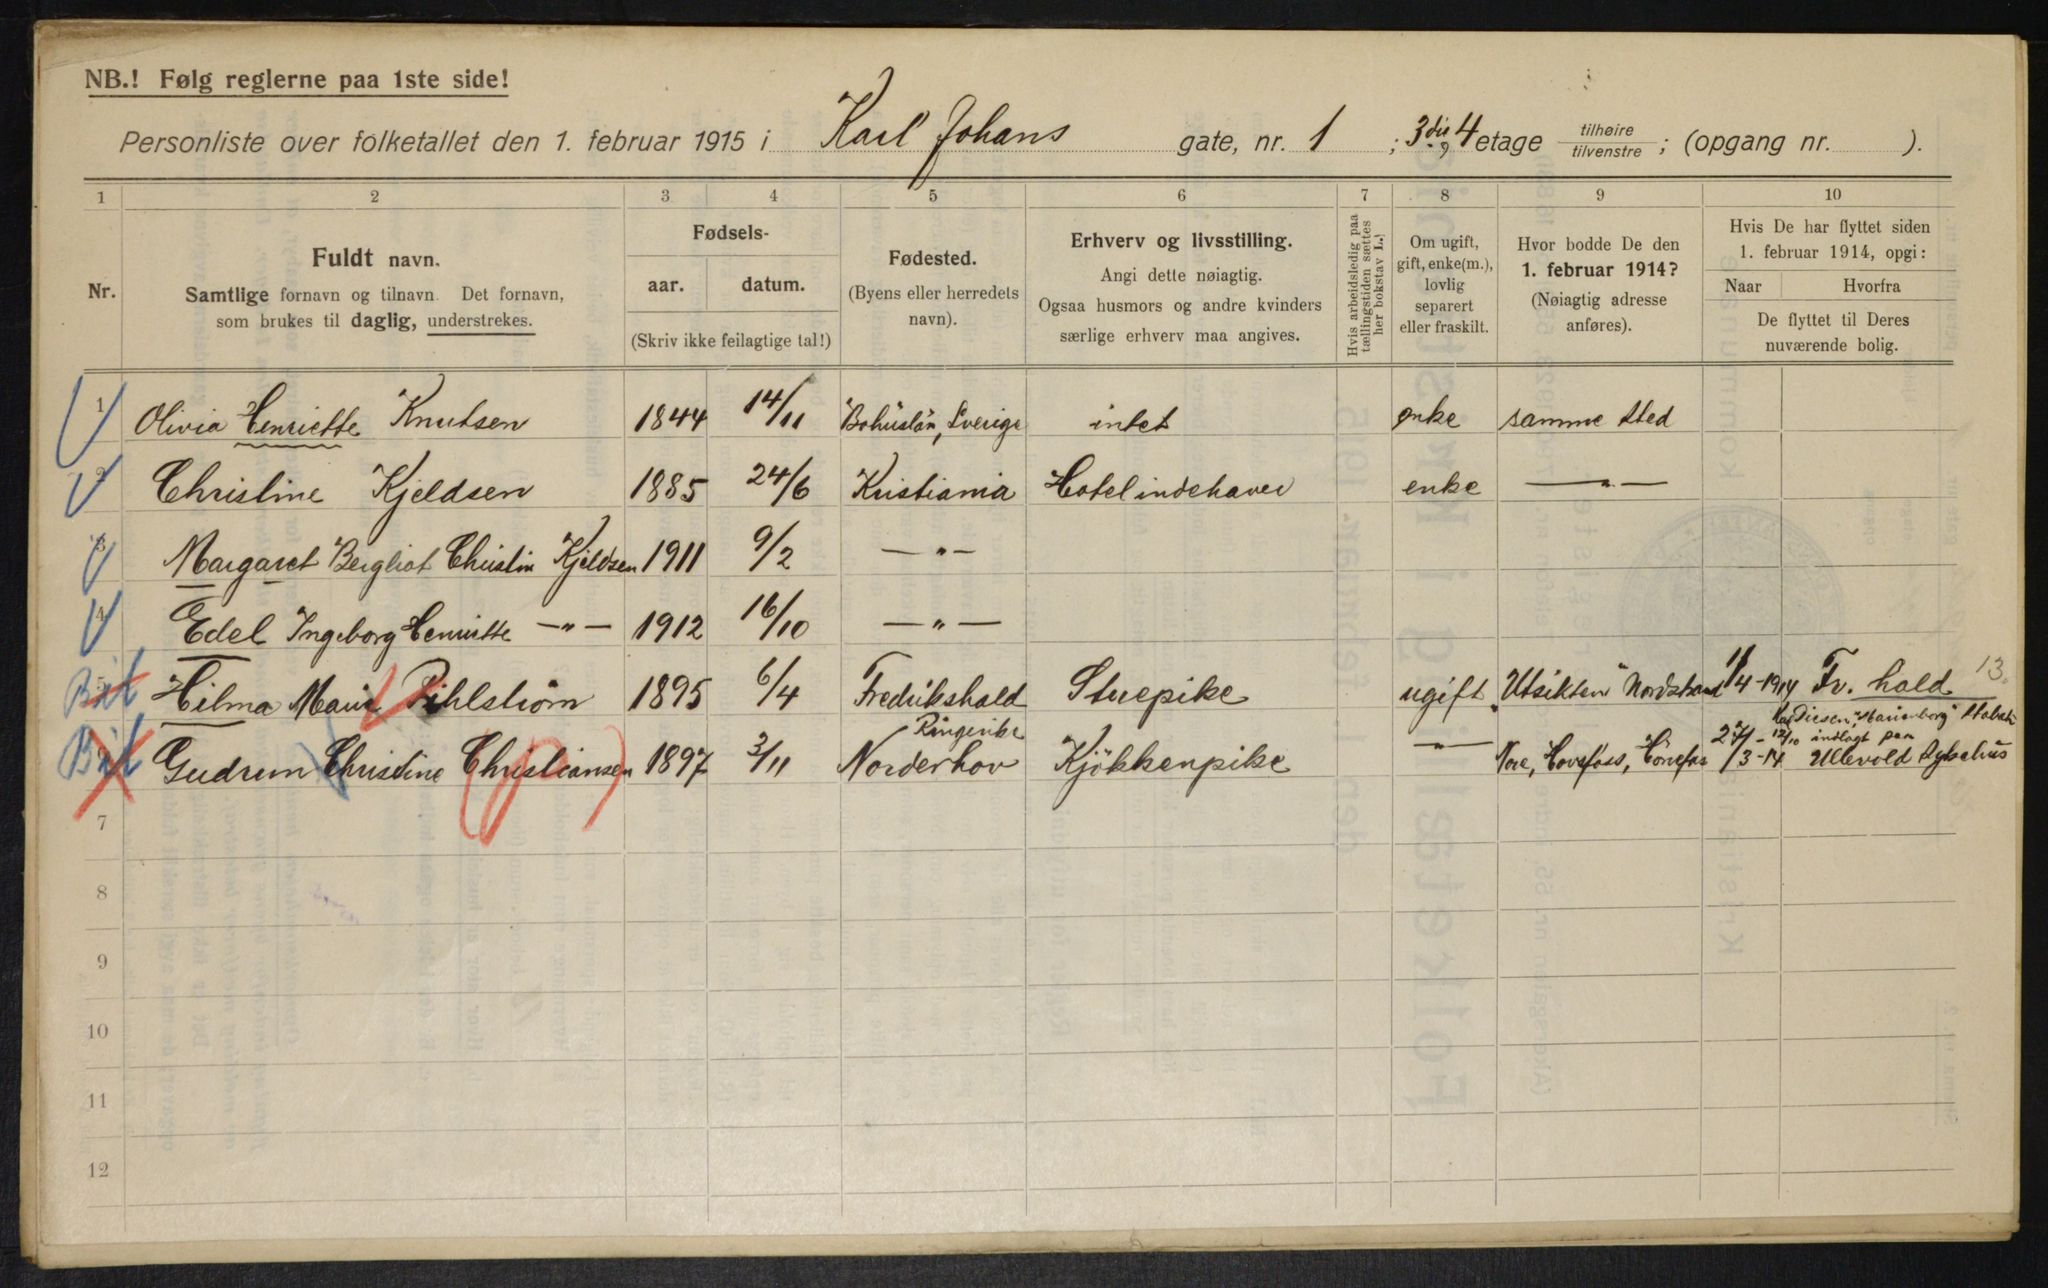 NB.! Følg reglerne paa 1ste side!
Personliste over folketallet den 1. februar 1915 i Karl Johans gate, nr. 1 ; 3die, 4 etage tilhøire tilvenstre ; (opgang nr. ).
1 2 3 4 5 6 7 8 9 10
Nr.
Fuldt navn.
Samtlige fornavn og tilnavn. Det fornavn,
som brukes til daglig, understrekes.
Fødsels-
aar. datum.
(Skriv ikke feilagtige tal!)
Fødested.
(Byens eller herredets
navn).
Erhverv og livsstilling.
Angi dette nøiagtig.
Ogsaa husmors og andre kvinders
særlige erhverv maa angives.
Hvis arbeidsledig paa
tællingstiden sættes
her bokstav L.
Om ugift,
gift, enke(m.),
lovlig
separert
eller fraskilt.
Hvor bodde De den
1. februar 1914?
(Nøiagtig adresse
anføres).
Hvis De har flyttet siden
1. februar 1914, opgi:
Naar Hvorfra
De flyttet til Deres
nuværende bolig.
1 Olivia Henriette Knutsen 1844 14/11 Bohuslän, Sverige intet enke samme sted
2 Christine Kjeldsen 1885 24/6 Kristiania Hotelindehaver enke —"—
3 Margaret Bergliot Christin Kjeldsen 1911 9/2 —"—
4 Edel Ingeborg Henriette —"— 1912 16/10 —"—
Bit 5 Hilma Marie Pihlstrøm 1895 6/4 Fredrikshald Stuepike ugift "Utsikten" Nordstrand 1/4-1914 Fr. hald 13.
Ringerike
"Marienborg" Stabæk
Bit 6 Gudrun Christine Christiansen 1897 3/11 Norderhov Kjökkenpike —"— Hovsfoss, Hönefos 27/3-14 12/10 indlagt paa Ullevold Sykehus
7
8
9
10
11
12